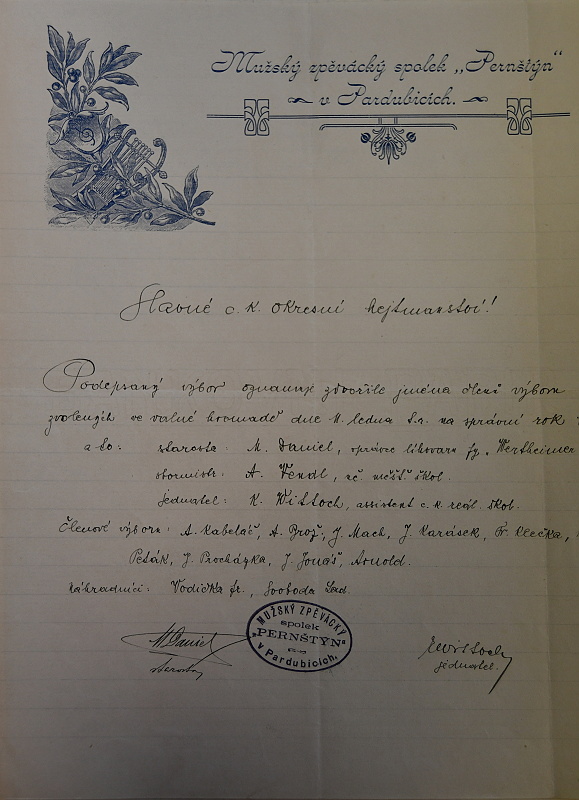 Mužský zpěvácký spolek „Pernštýn“
v Pardubicích.
Slavné c. k. okresní hejtmanství!
Podepsaný výbor oznamuje zdvořile jména členů výboru
zvolených ve valné hromadě dne 11. ledna t.r. na správní rok
a to: starosta: M. Daniel, správce lihovaru fy. Wertheimer
starosti: A. Vendl, uč. měšť. škol.
jednatel: K. Wittoch, assistent c. k. reál. škol.
Členové výboru: A. Kabeláč, A. Brož, J. Mach, J. Karásek, Fr. Klečka,
Peták, J. Procházka, J. Jonáš, Arnold.
Náhradníci: Vodička fr., Svoboda Lad.
MUŽSKÝ ZPĚVÁCKÝ
spolek
„PERNŠTÝN“
v Pardubicích.
M Daniel
starosta
KWittoch
jednatel.